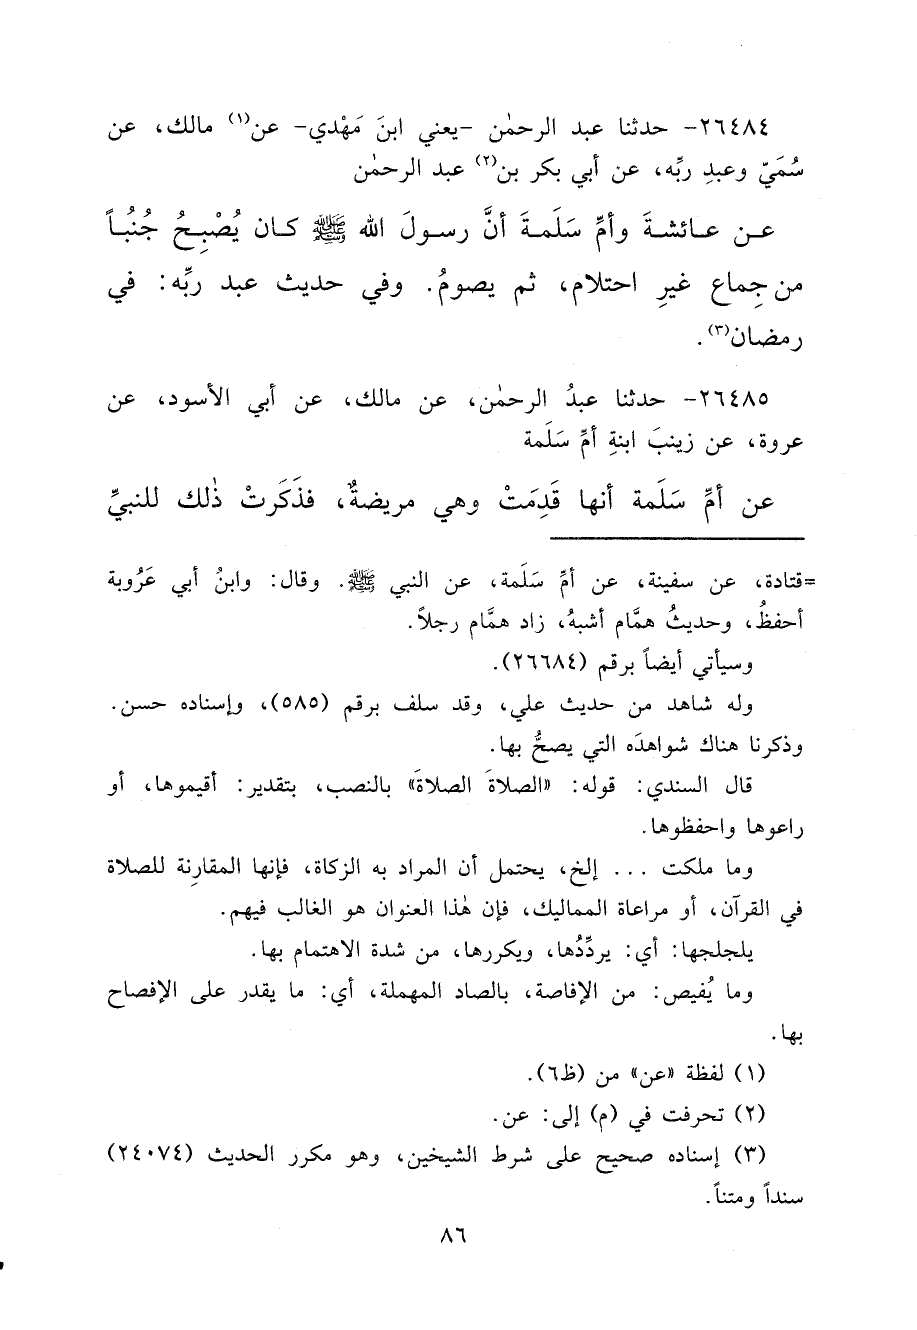 ٢٦٤٨٤- حدثنا عبد الرحمٰن -يعني ابنَ مَهْدي- عن(١) مالك، عن
سُمَيّ وعبدِ ربِّه، عن أبي بكر بن(٢) عبد الرحمٰن
عن عائشةَ وأمِّ سَلَمةَ أنَّ رسولَ الله ﷺ كان يُصْبِحُ جُنُباً
من جِماع غيرِ احتلام، ثم يصومُ. وفي حديث عبد ربِّه: في
رمضان(٣).
٢٦٤٨٥- حدثنا عبدُ الرحمٰن، عن مالك، عن أبي الأسود، عن
عروة، عن زينبَ ابنةِ أمِّ سَلَمة
عن أمِّ سَلَمة أنها قَدِمَتْ وهي مريضةٌ، فذَكَرتْ ذٰلك للنبيِّ
=قتادة، عن سفينة، عن أمِّ سَلَمة، عن النبي ﷺ. وقال: وابنُ أبي عَرُوبة
أحفظُ، وحديثُ همَّام أشبهُ، زاد همَّام رجلاً.
وسيأتي أيضاً برقم (٢٦٦٨٤).
وله شاهد من حديث علي، وقد سلف برقم (٥٨٥)، وإسناده حسن.
وذكرنا هناك شواهدَه التي يصحُّ بها.
قال السندي: قوله: «الصلاةَ الصلاةَ» بالنصب، بتقدير: أقيموها، أو
راعوها واحفظوها.
وما ملكت ... إلخ، يحتمل أن المراد به الزكاة، فإنها المقارِنة للصلاة
في القرآن، أو مراعاة المماليك، فإن هٰذا العنوان هو الغالب فيهم.
يلجلجها: أي: يردِّدُها، ويكررها، من شدة الاهتمام بها.
وما يُفيص: من الإفاصة، بالصاد المهملة، أي: ما يقدر على الإفصاح
بها.
(١) لفظة «عن» من (ظ٦).
(٢) تحرفت في (م) إلى: عن.
(٣) إسناده صحيح على شرط الشيخين، وهو مكرر الحديث (٢٤٠٧٤)
سنداً ومتناً.
٨٦